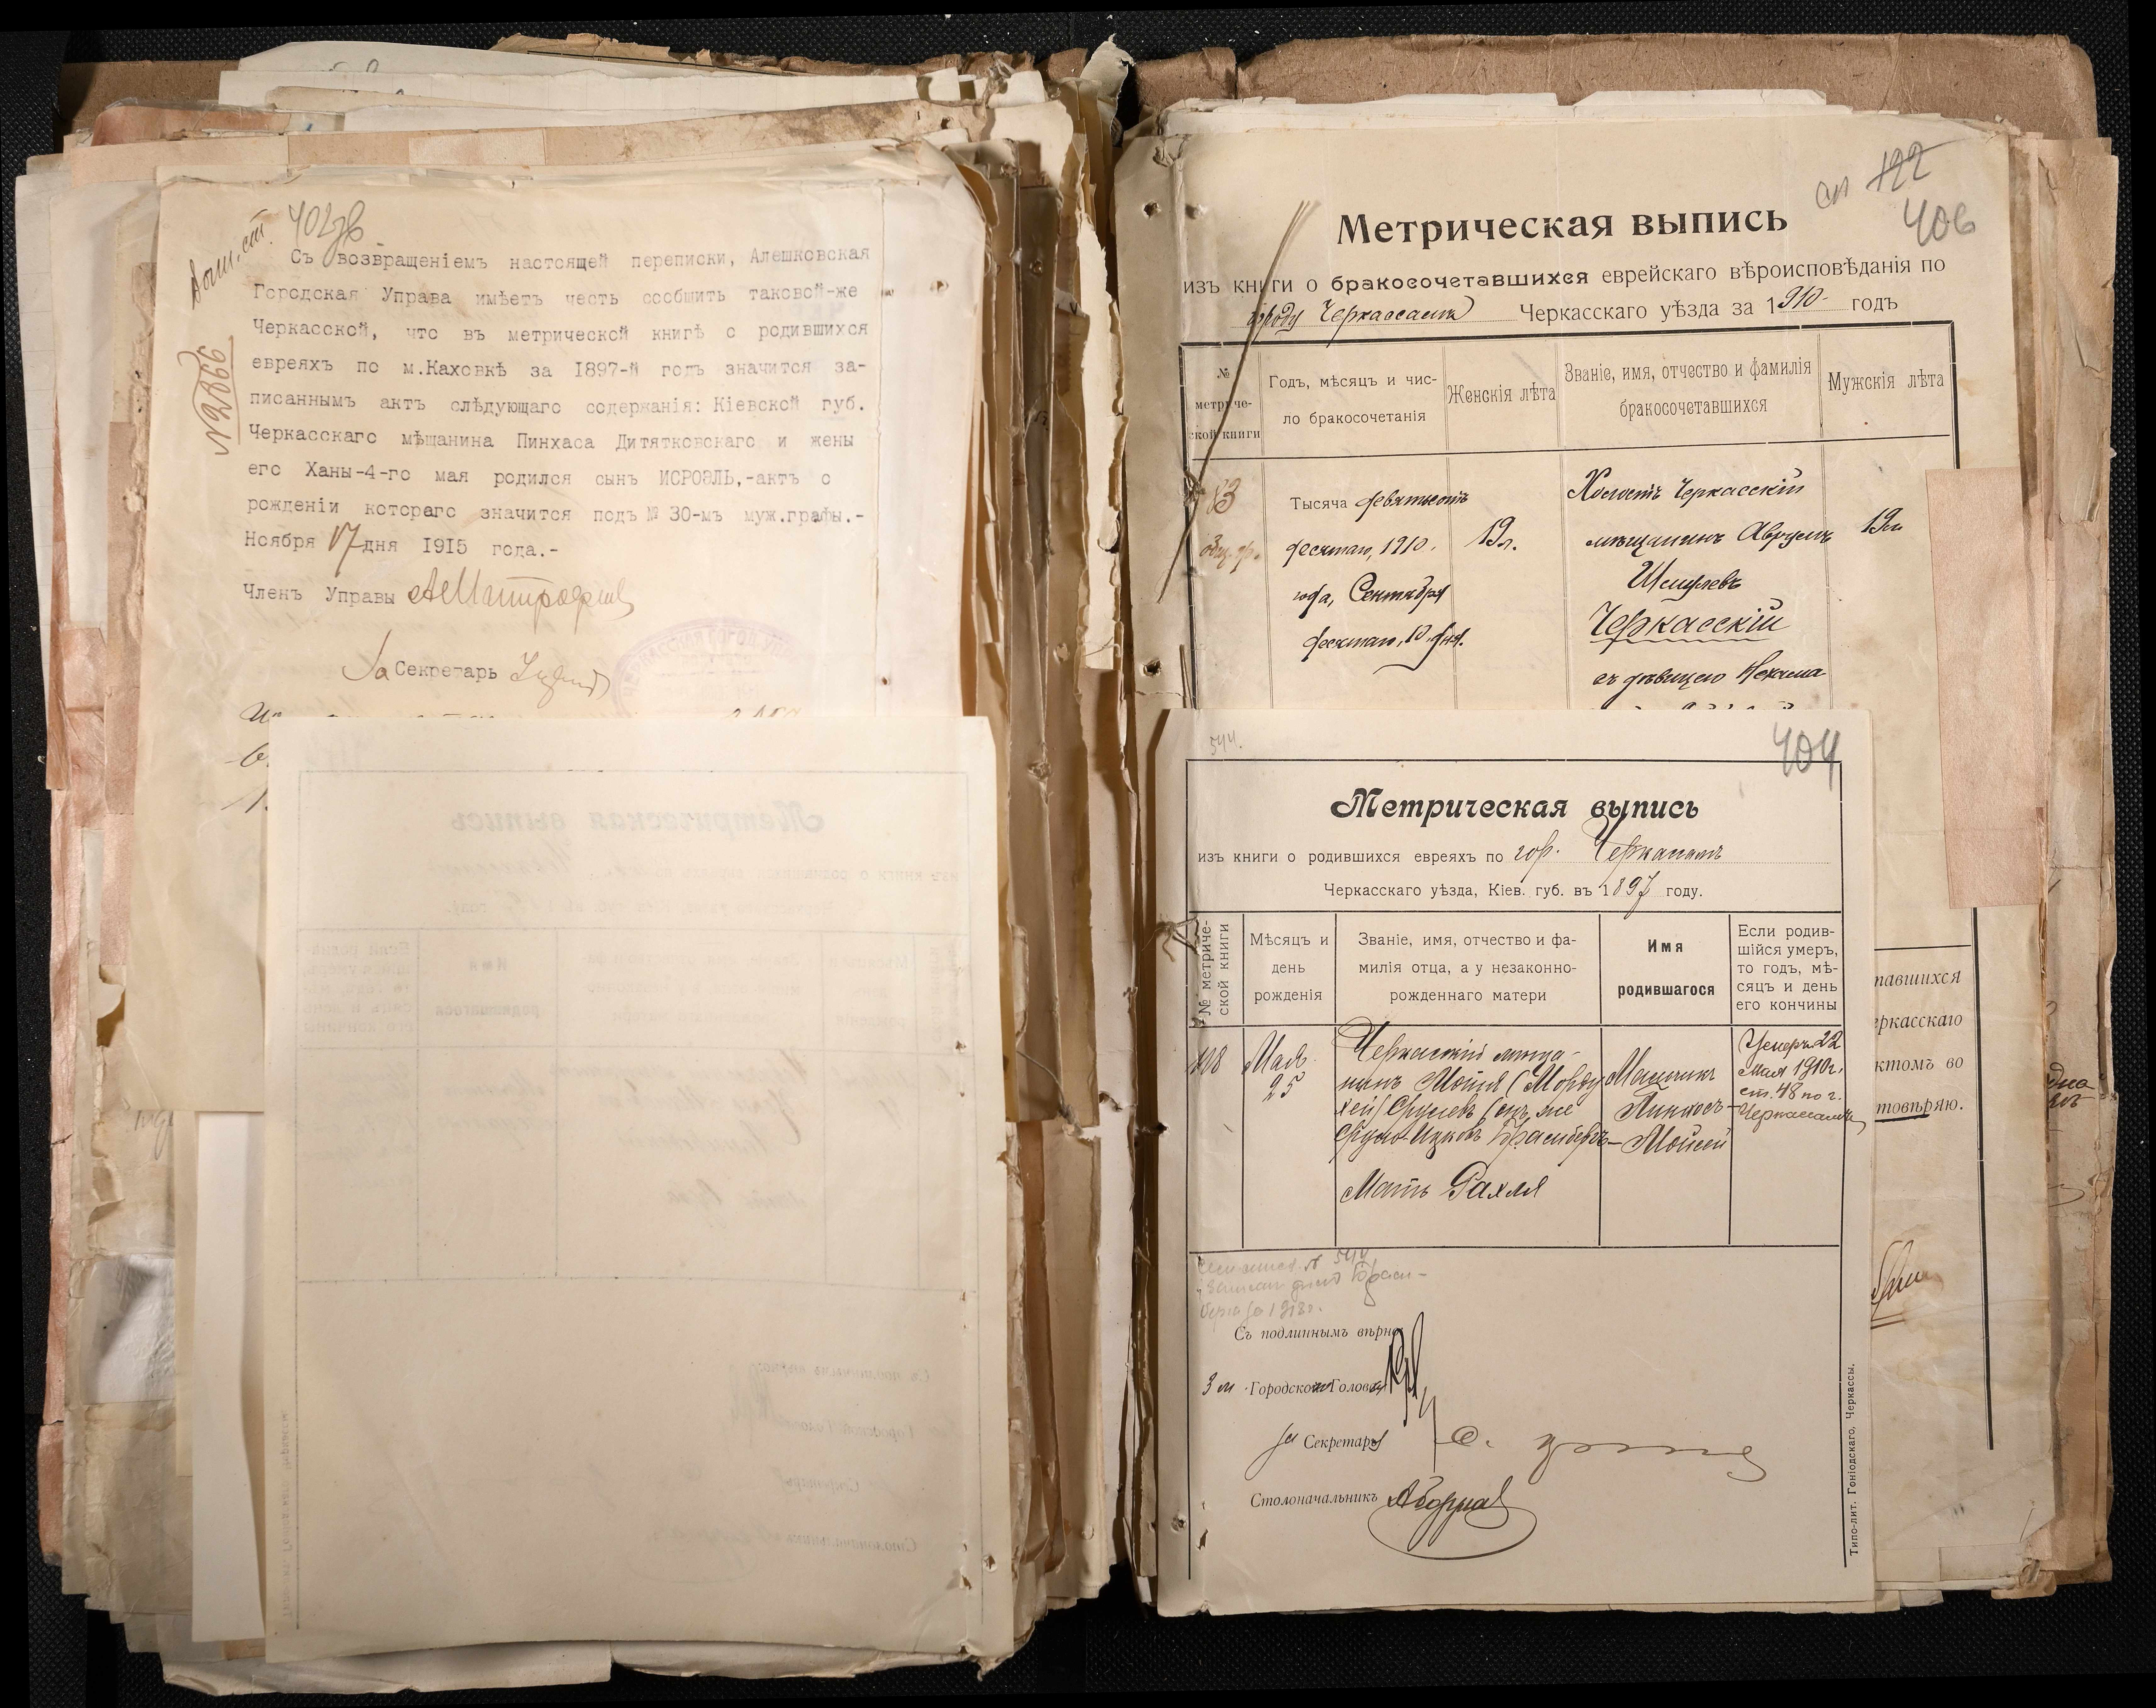 402об
Съ возвращеніемъ настоящей переписки, Алешковская
Городская Управа имѣетъ честь сообщить таковой-же
Черкасской, что въ метрической книгѣ о родившихся
евреяхъ по м.Каховкѣ за 1897-й годъ значится за-
писаннымъ актъ слѣдующаго содержанія: Кіевской губ.
Черкасскаго мѣщанина Пинхаса Дитятковскаго и жены
его Ханы-4-го мая родился сынъ ИСРОЭЛЬ,-актъ о
рожденіи котораго значится подъ № 30-мъ муж.графы.-
Ноября 17 дня 1915 года.-
Членъ Управы
За Секретарь
№ 2866
ЧЕРКАССКАЯ ГОРОД. УПР
122
406
Метрическая выпись
изъ книги о бракосочетавшихся еврейскаго вѣроисповѣданія по
городу Черкассамъ Черкасскаго уѣзда за 1910 годъ
№ метриче-ской книги
Годъ, мѣсяцъ и чис-
ло бракосочетанія
Женскія лѣта
Званіе, имя, отчество и фамилія
бракосочетавшихся
Мужскія лѣта
83
Тысяча девятьсотъ
десятаго, 1910.
года, Сентября
десятаго, 10 дня.
19 л.
Холостъ Черкасскій
мѣщанинъ Аврумъ
Шмулевъ
Черкасскій
съ дѣвицею Нехама
19 л.
тавшихся
еркасскаго
ктомъ во
товѣряю.
544.
404
Метрическая выпись
изъ книги о родившихся евреяхъ по гор. Черкасамъ
Черкасскаго уѣзда, Кіев. губ. въ 1897 году.
№ метриче-
ской книги
Мѣсяцъ и
день
рожденія
Званіе, имя, отчество и фа-
милія отца, а у незаконно-
рожденнаго матери
Имя
родившагося
Если родив-
шійся умеръ,
то годъ, мѣ-
сяцъ и день
его кончины
108
Мая
25
Черкасскій мѣща-
нинъ Мотя (Морду
хей) Сруlevъ (онъ же
Сруль-Ицковъ Брамбергъ
Мать Рахля
Пинхосъ-
Мойсей
Умеръ 22
мая 1910 г.
ст. 48 по г.
Черкассамъ
Съ подлиннымъ вѣрно:
Городской Голова
За Секретарь
Столоначальникъ
Типо-лит. Гоніодскаго, Черкассы.